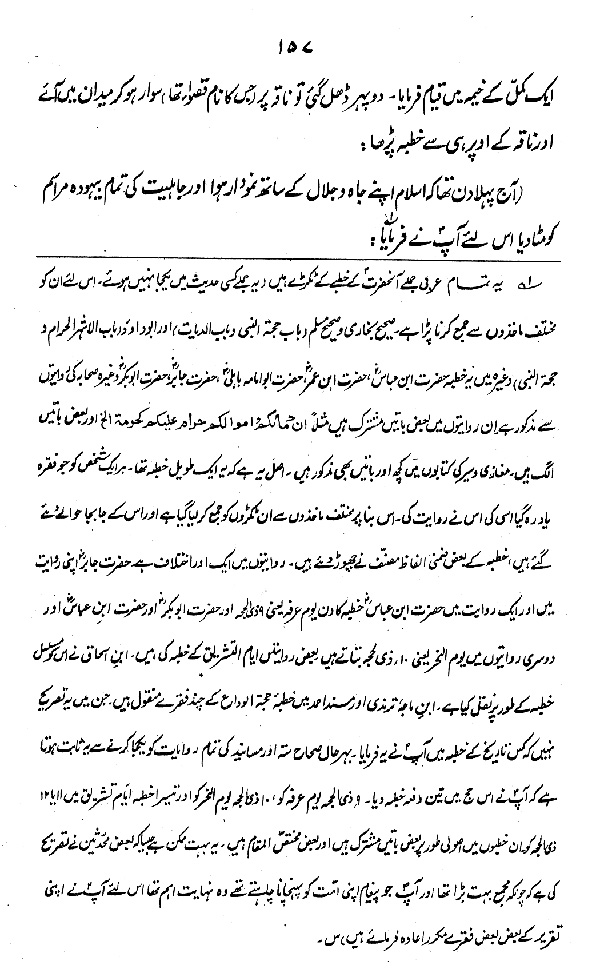 ۱۵۷
ایک کمل کے خیمہ میں قیام فرمایا۔ دوپہر ڈھل گئی تو ناقہ پر (جس کا نام قصواء تھا) سوار ہو کر میدان میں آئے
اور ناقہ کے اوپر ہی سے خطبہ پڑھا:
(آج پہلا دن تھا کہ اسلام اپنے جاہ و جلال کے ساتھ نمودار ہوا اور جاہلیت کی تمام بیہودہ مراسم
کو مٹا دیا اس لئے آپؐ نے فرمایا:
لہ یہ تمام عربی جملے آنحضرتؐ کے خطبے کے ٹکڑے ہیں (یہ جملے کسی حدیث میں یکجا نہیں ہوئے۔ اس لئے ان کو
مختلف ماخذوں سے جمع کرنا پڑا ہے۔ صحیح بخاری و صحیح مسلم (باب حجۃ النبی و باب الدیات) اور ابوداؤد (باب الاشہر الحرام و
حجۃ النبی) وغیرہ میں یہ خطبہ حضرت ابن عباسؓ، حضرت ابن عمرؓ، حضرت ابو امامہ باہلیؓ، حضرت جابرؓ، حضرت ابوبکرؓ وغیرہ صحابہ کی روایتوں
سے مذکور ہے ان روایتوں میں بعض باتیں مشترک ہیں مثلاً ان دمائکم و اموالکم حرام علیکم کحرمۃ الخ اور بعض باتیں
الگ ہیں۔ مغازی و سیر کی کتابوں میں کچھ اور باتیں بھی مذکور ہیں۔ اصل یہ ہے کہ یہ ایک طویل خطبہ تھا۔ ہر ایک شخص کو جو فقرہ
یاد رہ گیا اسی کی اس نے روایت کی۔ اس بنا پر مختلف ماخذوں سے ان ٹکڑوں کو جمع کر لیا گیا ہے اور اس کے جابجا حوالے دئے
گئے ہیں (خطبہ کے بعض ضمنی الفاظ مصنف نے چھوڑ دئے ہیں۔ روایتوں میں ایک اور اختلاف ہے۔ حضرت جابرؓ اپنی روایت
میں اور ایک روایت میں حضرت ابن عباسؓ خطبہ کا دن یوم عرفہ یعنی ۹ ذی الحجہ اور حضرت ابوبکرؓ اور حضرت ابن عباسؓ اور
دوسری روایتوں میں یوم النحر یعنی ۱۰ ذی الحجہ بتاتے ہیں بعض روایتیں ایام التشریق کے خطبہ کی ہیں۔ ابن اسحاق نے اس کو مسلسل
خطبہ کے طور پر نقل کیا ہے۔ ابن ماجہ ترمذی اور مسند احمد میں خطبہ حجۃ الوداع کے چند فقرے منقول ہیں جن میں یہ تصریح
نہیں کہ کس تاریخ کے خطبہ میں آپؐ نے یہ فرمایا۔ بہر حال صحاح ستہ اور مسانید کی تمام روایات کو یکجا کرنے سے یہ ثابت ہوتا
ہے کہ آپؐ نے اس حج میں تین دفعہ خطبہ دیا۔ ۹ ذی الحجہ یوم عرفہ کو ۱۰ ذی الحجہ یوم النحر کو اور تیسرا خطبہ ایام تشریق میں ۱۱ یا ۱۲
ذی الحجہ کو ان خطبوں میں اصولی طور پر بعض باتیں مشترک ہیں اور بعض مختص المقام ہیں۔ یہ بہت ممکن ہے جیسا کہ بعض محدثین نے تصریح
کی ہے کہ چونکہ مجمع بہت بڑا تھا اور آپؐ جو پیغام اپنی امت کو پہنچانا چاہتے تھے وہ نہایت اہم تھا اس لئے آپؐ نے اپنی
تقریر کے بعض بعض فقرے مکرر اعادہ فرمائے ہیں) س۔